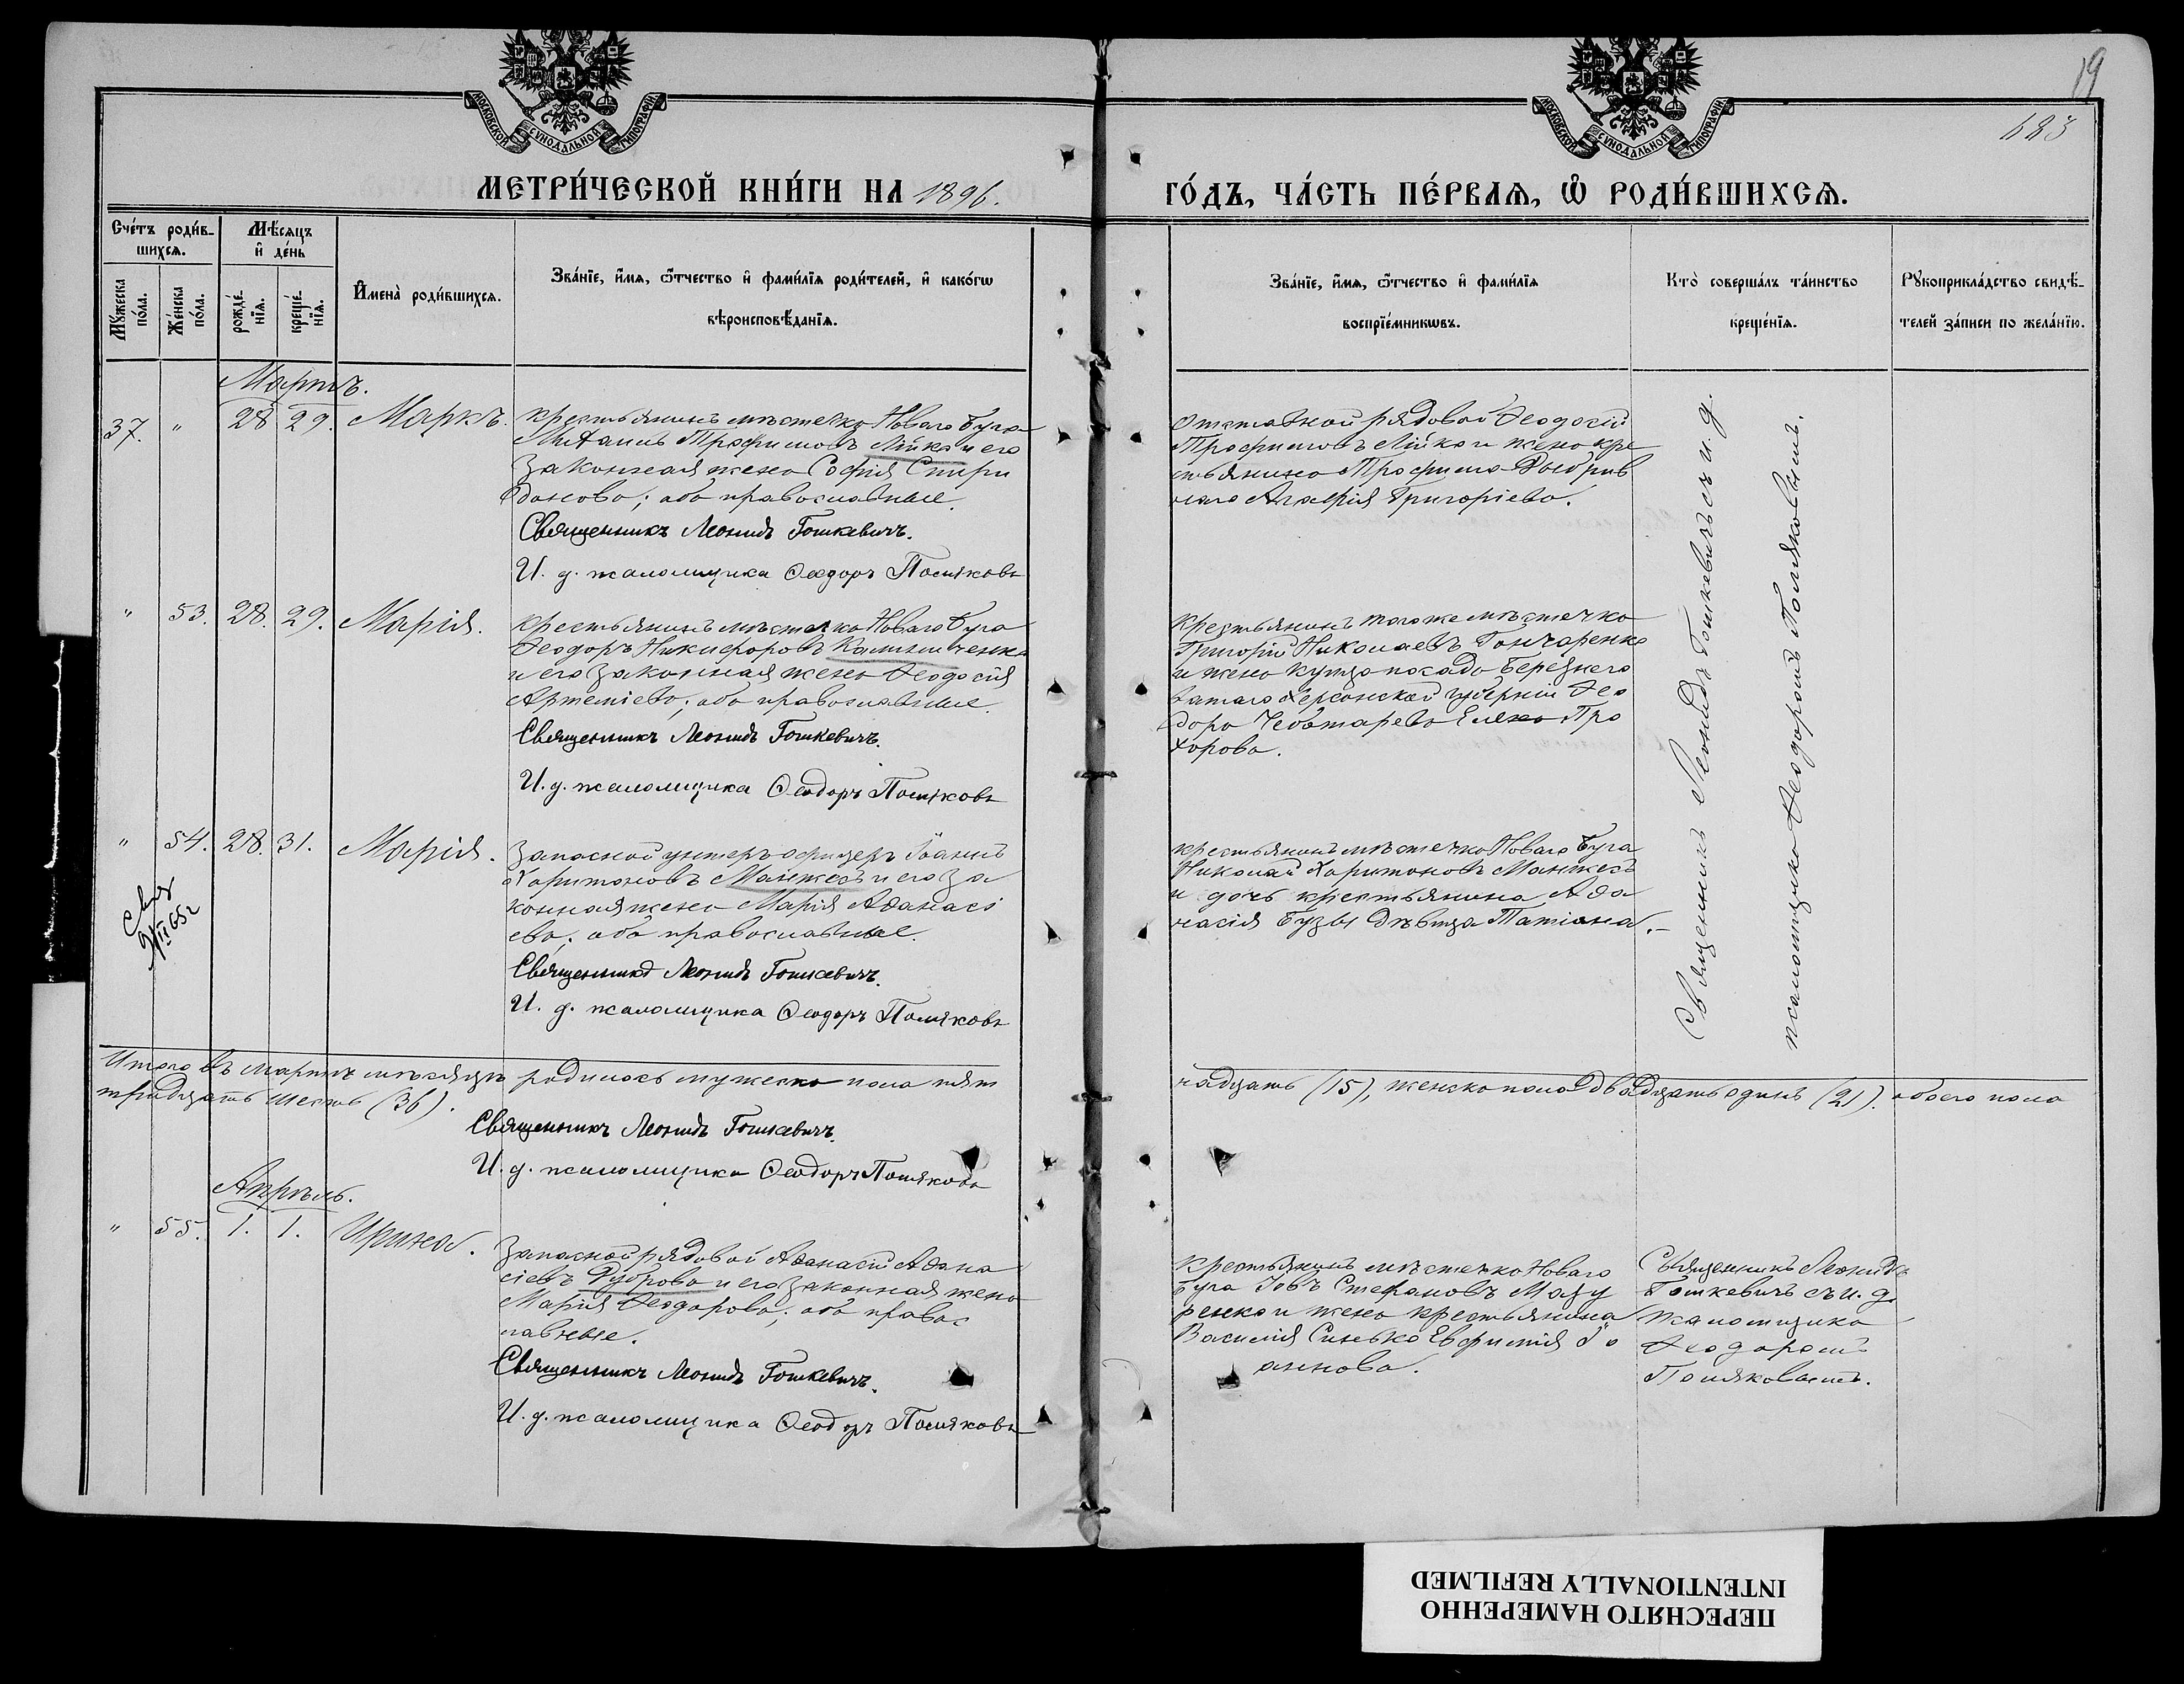 19
683
МОСКОВСКОЙ СѴНОДАЛЬНОЙ ТИПОГРАФІИ
МОСКОВСКОЙ СѴНОДАЛЬНОЙ ТИПОГРАФІИ
МЕТРИ́ЧЕСКОЙ КНИ́ГИ НА 1896.
ГО́ДЪ, ЧА́СТЬ ПЕ́РВАѦ, Ѡ҆ РОДИ́ВШИХСѦ.
Сче́тъ роди́в-
шихсѧ.
Мꙋ́жеска
по́ла.
Же́нска
по́ла.
Мѣ́сѧцъ
и҆ де́нь
рожде́-
нїѧ.
креще́-
нїѧ.
И҆мена̀ роди́вшихсѧ.
Зва́нїе, и҆́мѧ, ѻ҆́тчество и҆ фами́лїѧ роди́телей, и҆ како́гѡ
вѣроисповѣ́данїѧ.
Зва́нїе, и҆́мѧ, ѻ҆́тчество и҆ фами́лїѧ
воспрїе́мникѡвъ.
Кто̀ соверша́лъ та́инство
креще́нїѧ.
Рꙋкоприкла́дство свидѣ́-
телей за́писи по жела́нїю.
Мартъ.
37. " 28 29. Маркъ.
крестьянинъ мѣстечка Новаго Буга
Трофимовъ Лійка и его
законная жена Софія Спири
донова; оба православные.
Священникъ Леонидъ Гошкевичъ.
И. д. псаломщика Ѳеодоръ Поляковъ
Отставной рядовой Ѳеодосій
Трофимовъ Лійка и жена кре
стьянина Трофима
Григоріева.
" 53. 28. 29. Марія.
крестьянинъ мѣстечка Новаго Буга
Ѳеодоръ Никифоровъ Калиниченко
и его законная жена Ѳеодосія
Артеміева; оба православные.
Священникъ Леонидъ Гошкевичъ.
И. д. псаломщика Ѳеодоръ Поляковъ
крестьянинъ того же мѣстечка
Григорій Николаевъ Гончаренко
и жена купца посада Березнего
ватаго Херсонской губерніи Ѳео
дора Чеботарева Елена Про
хорова.
" 54. 28. 31. Марія.
Запасной унтеръ офицеръ Іоаннъ
Харитоновъ Манжосъ и его за
конная жена Марія Аѳанасі
ева; оба православные.
Священникъ Леонидъ Гошкевичъ.
И. д. псаломщика Ѳеодоръ Поляковъ
крестьянинъ мѣстечка Новаго Буга
Николай Харитоновъ Манжосъ
и дочь крестьянина Аѳа
насія Бузы дѣвица Татіана.
Священникъ Леонидъ Гошкевичъ съ и. д.
псаломщика Ѳеодоромъ Поляковымъ.
Итого въ мартѣ мѣсяцѣ родилось мужеска пола пят
надцать (15), женска пола двадцать одинъ (21). обоего пола
тридцать шесть (36).
Священникъ Леонидъ Гошкевичъ.
И. д. псаломщика Ѳеодоръ Поляковъ
Апрѣль.
" 55. 1. 1. Ирина.
Запасной рядовой Аѳанасій Аѳана
сіевъ Дуброва и его законная жена
Марія Ѳеодорова; оба правос
лавные.
Священникъ Леонидъ Гошкевичъ.
И. д. псаломщика Ѳеодоръ Поляковъ
крестьянинъ мѣстечка Новаго
Буга Іовъ Стефановъ Мазу
ренко и жена крестьянина
Василія Синька Евфимія Іо
аннова.
Священникъ Леонидъ
Гошкевичъ съ и. д.
псаломщика
Ѳеодоромъ
Поляковымъ.
ПЕРЕСНЯТО НАМЕРЕННО
INTENTIONALLY REFILMED